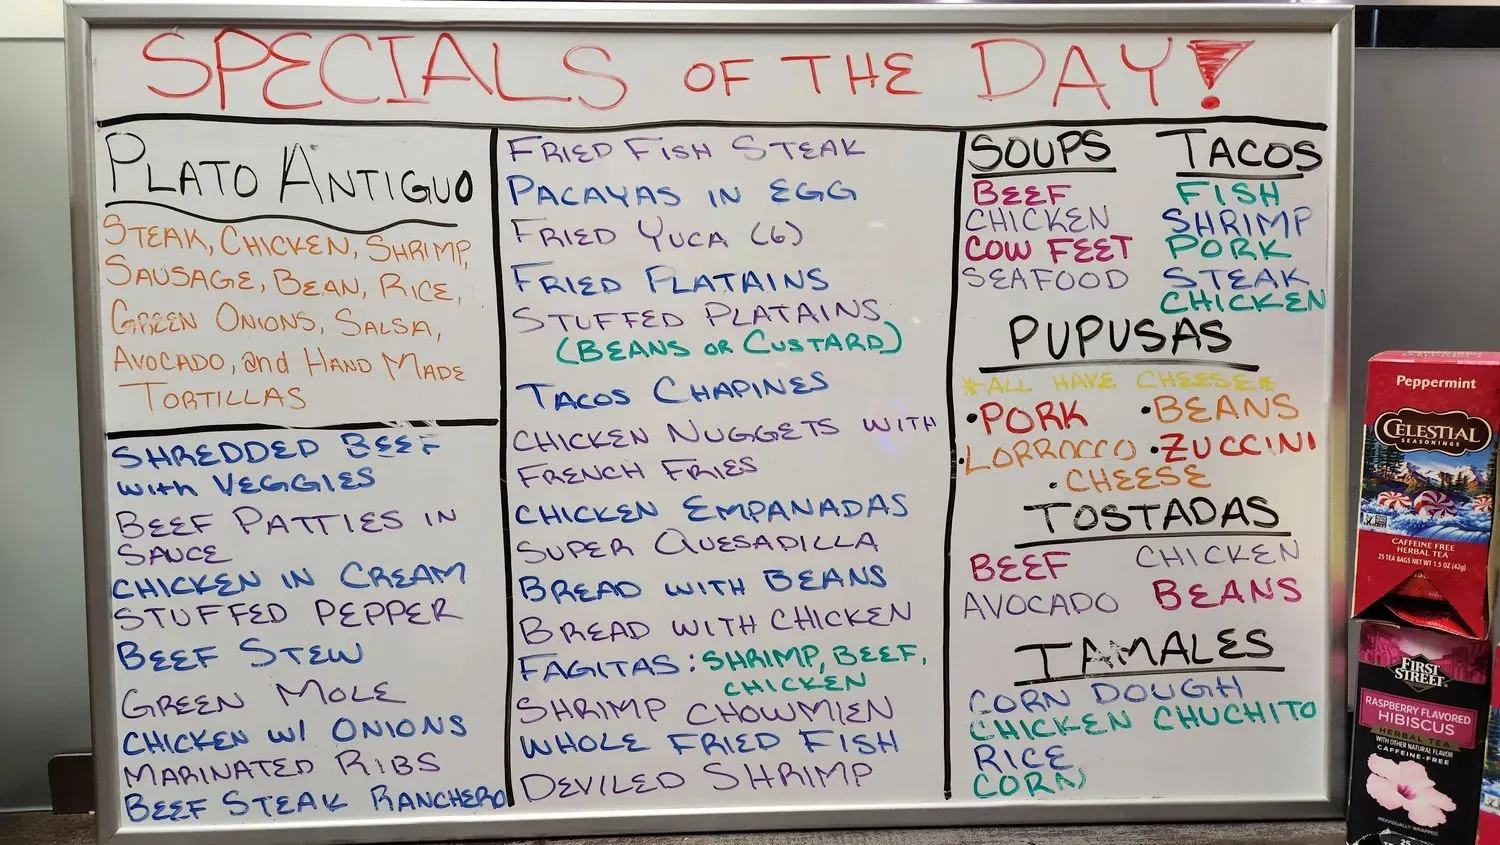 SPECIALS OF THE DAY!
PLATO ANTIGUO
STEAK, CHICKEN, SHRIMP,
SAUSAGE, BEAN, RICE,
GREEN ONIONS, SALSA,
AVOCADO, and HAND MADE
TORTILLAS
SHREDDED BEEF
with VEGGIES
BEEF PATTIES IN
SAUCE
CHICKEN IN CREAM
STUFFED PEPPER
BEEF STEW
GREEN MOLE
CHICKEN W/ ONIONS
MARINATED RIBS
BEEF STEAK RANCHERO
FRIED FISH STEAK
PACAYAS IN EGG
FRIED YUCA (6)
FRIED PLATAINS
STUFFED PLATAINS
(BEANS OR CUSTARD)
TACOS CHAPINES
CHICKEN NUGGETS WITH
FRENCH FRIES
CHICKEN EMPANADAS
SUPER QUESADILLA
BREAD WITH BEANS
BREAD WITH CHICKEN
FAGITAS: SHRIMP, BEEF,
CHICKEN
SHRIMP CHOWMIEN
WHOLE FRIED FISH
DEVILED SHRIMP
SOUPS
BEEF
CHICKEN
COW FEET
SEAFOOD
TACOS
FISH
SHRIMP
PORK
STEAK
CHICKEN
PUPUSAS
*ALL HAVE CHEESE*
•PORK •BEANS
•LORROCCO •ZUCCINI
•CHEESE
TOSTADAS
BEEF CHICKEN
AVOCADO BEANS
TAMALES
CORN DOUGH
CHICKEN CHUCHITO
RICE
CORN
Peppermint
CELESTIAL
SEASONINGS
CAFFEINE FREE
HERBAL TEA
25 TEA BAGS NET WT 1.5 OZ (42g)
FIRST
STREET
RASPBERRY FLAVORED
HIBISCUS
HERBAL TEA
WITH OTHER NATURAL FLAVOR
CAFFEINE-FREE
INDIVIDUALLY WRAPPED
25